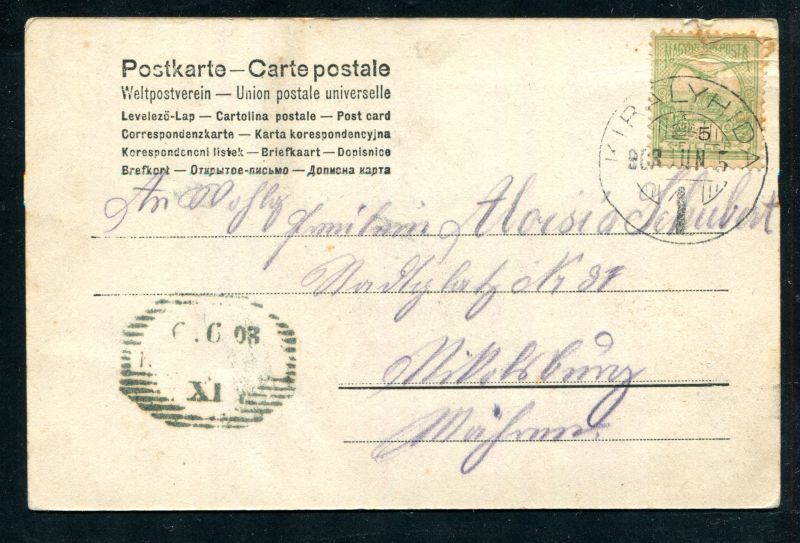 Postkarte – Carte postale
Weltpostverein — Union postale universelle
Levelező-Lap — Cartolina postale — Post card
Correspondenzkarte — Karta korespondencyjna
Korespondencni listek — Briefkaart — Dopisnice
Brefkort — Открытое-письмо — Дописна карта
MAGYAR KIR. POSTA
5
FILLÉR
KIRÁLYHIDA
903 JUN 5
An Wohlg
Fräulein Aloisia Schubert
Stadtplatz Nr 31
Nikolsburg
Mähren
6.6 03
XI